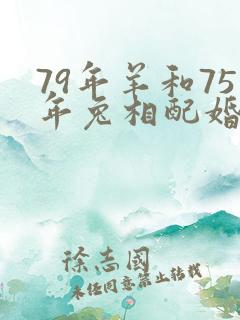 79年羊和75
年兔相配婚
徐志國
未经同意禁止转载